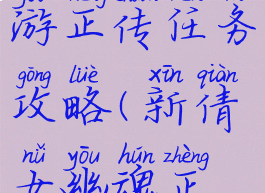 游正传任务
gōng lüè xīn qiàn
攻略(新倩
nǚ yōu hún zhèng
女幽魂正